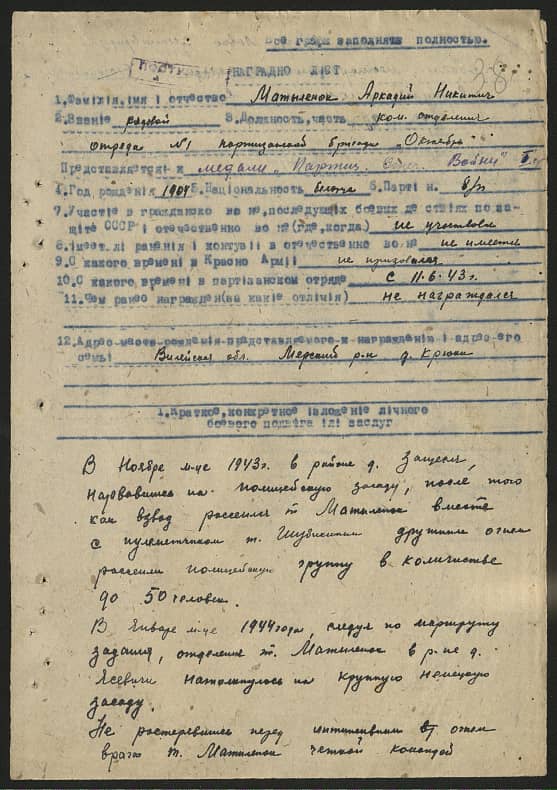 все графы заполнять полностью.
НАГРАДНО ЛИСТ
38
1.Фамілія,імя і отчество Матыленок Аркадий Никитич
2.Званіе рядовой 3.Должность,часть ком. отделения
отряда №1 партизанской бригады "Октябрь"
Представляется к медали "Партиз. Отеч. Войны" II ст.
4.Год рожденія 1909 5.Національность белорус 6.Парті н. б/п
7.Участіе в гражданско во не,последующіх боевых де ствіях по за-
щіте СССР і отечественно во не(где,когда) не участвовал
8.імеет лі раненія і контузіі в отечественно во не не имеет
9.О какого времені в Красно Арміі не призывался
10.О какого времені в партізанском отряде с 11.6.43г.
11.Чем ранее награжден(за какіе отлічія) не награждался
12.Адрес место рожденія представляемого к награжденію і адрес его
семьі Вилейская обл. Мерский р-н д. Крюки
1.Краткое,конкретное ізложеніе лічного
боевого подвіга ілі заслуг
В Ноябре м-це 1943г. в районе д.
нарвовшись на полицейскую засаду, после того
как взвод рассеился т. Матыленок вместе
с пулеметчиком т. дружным огнем
рассеяли полицейскую группу в количистве
до 50 человек.
В Январе м-це 1944 года, следуя по маршруту
задания, отделение т. Матыленок в р-не д.
Ясевичи натолкнулось на крупную немецкую
засаду.
Не ростерявшись перед интинсивным огнем
врага т. Матыленок четкой командой